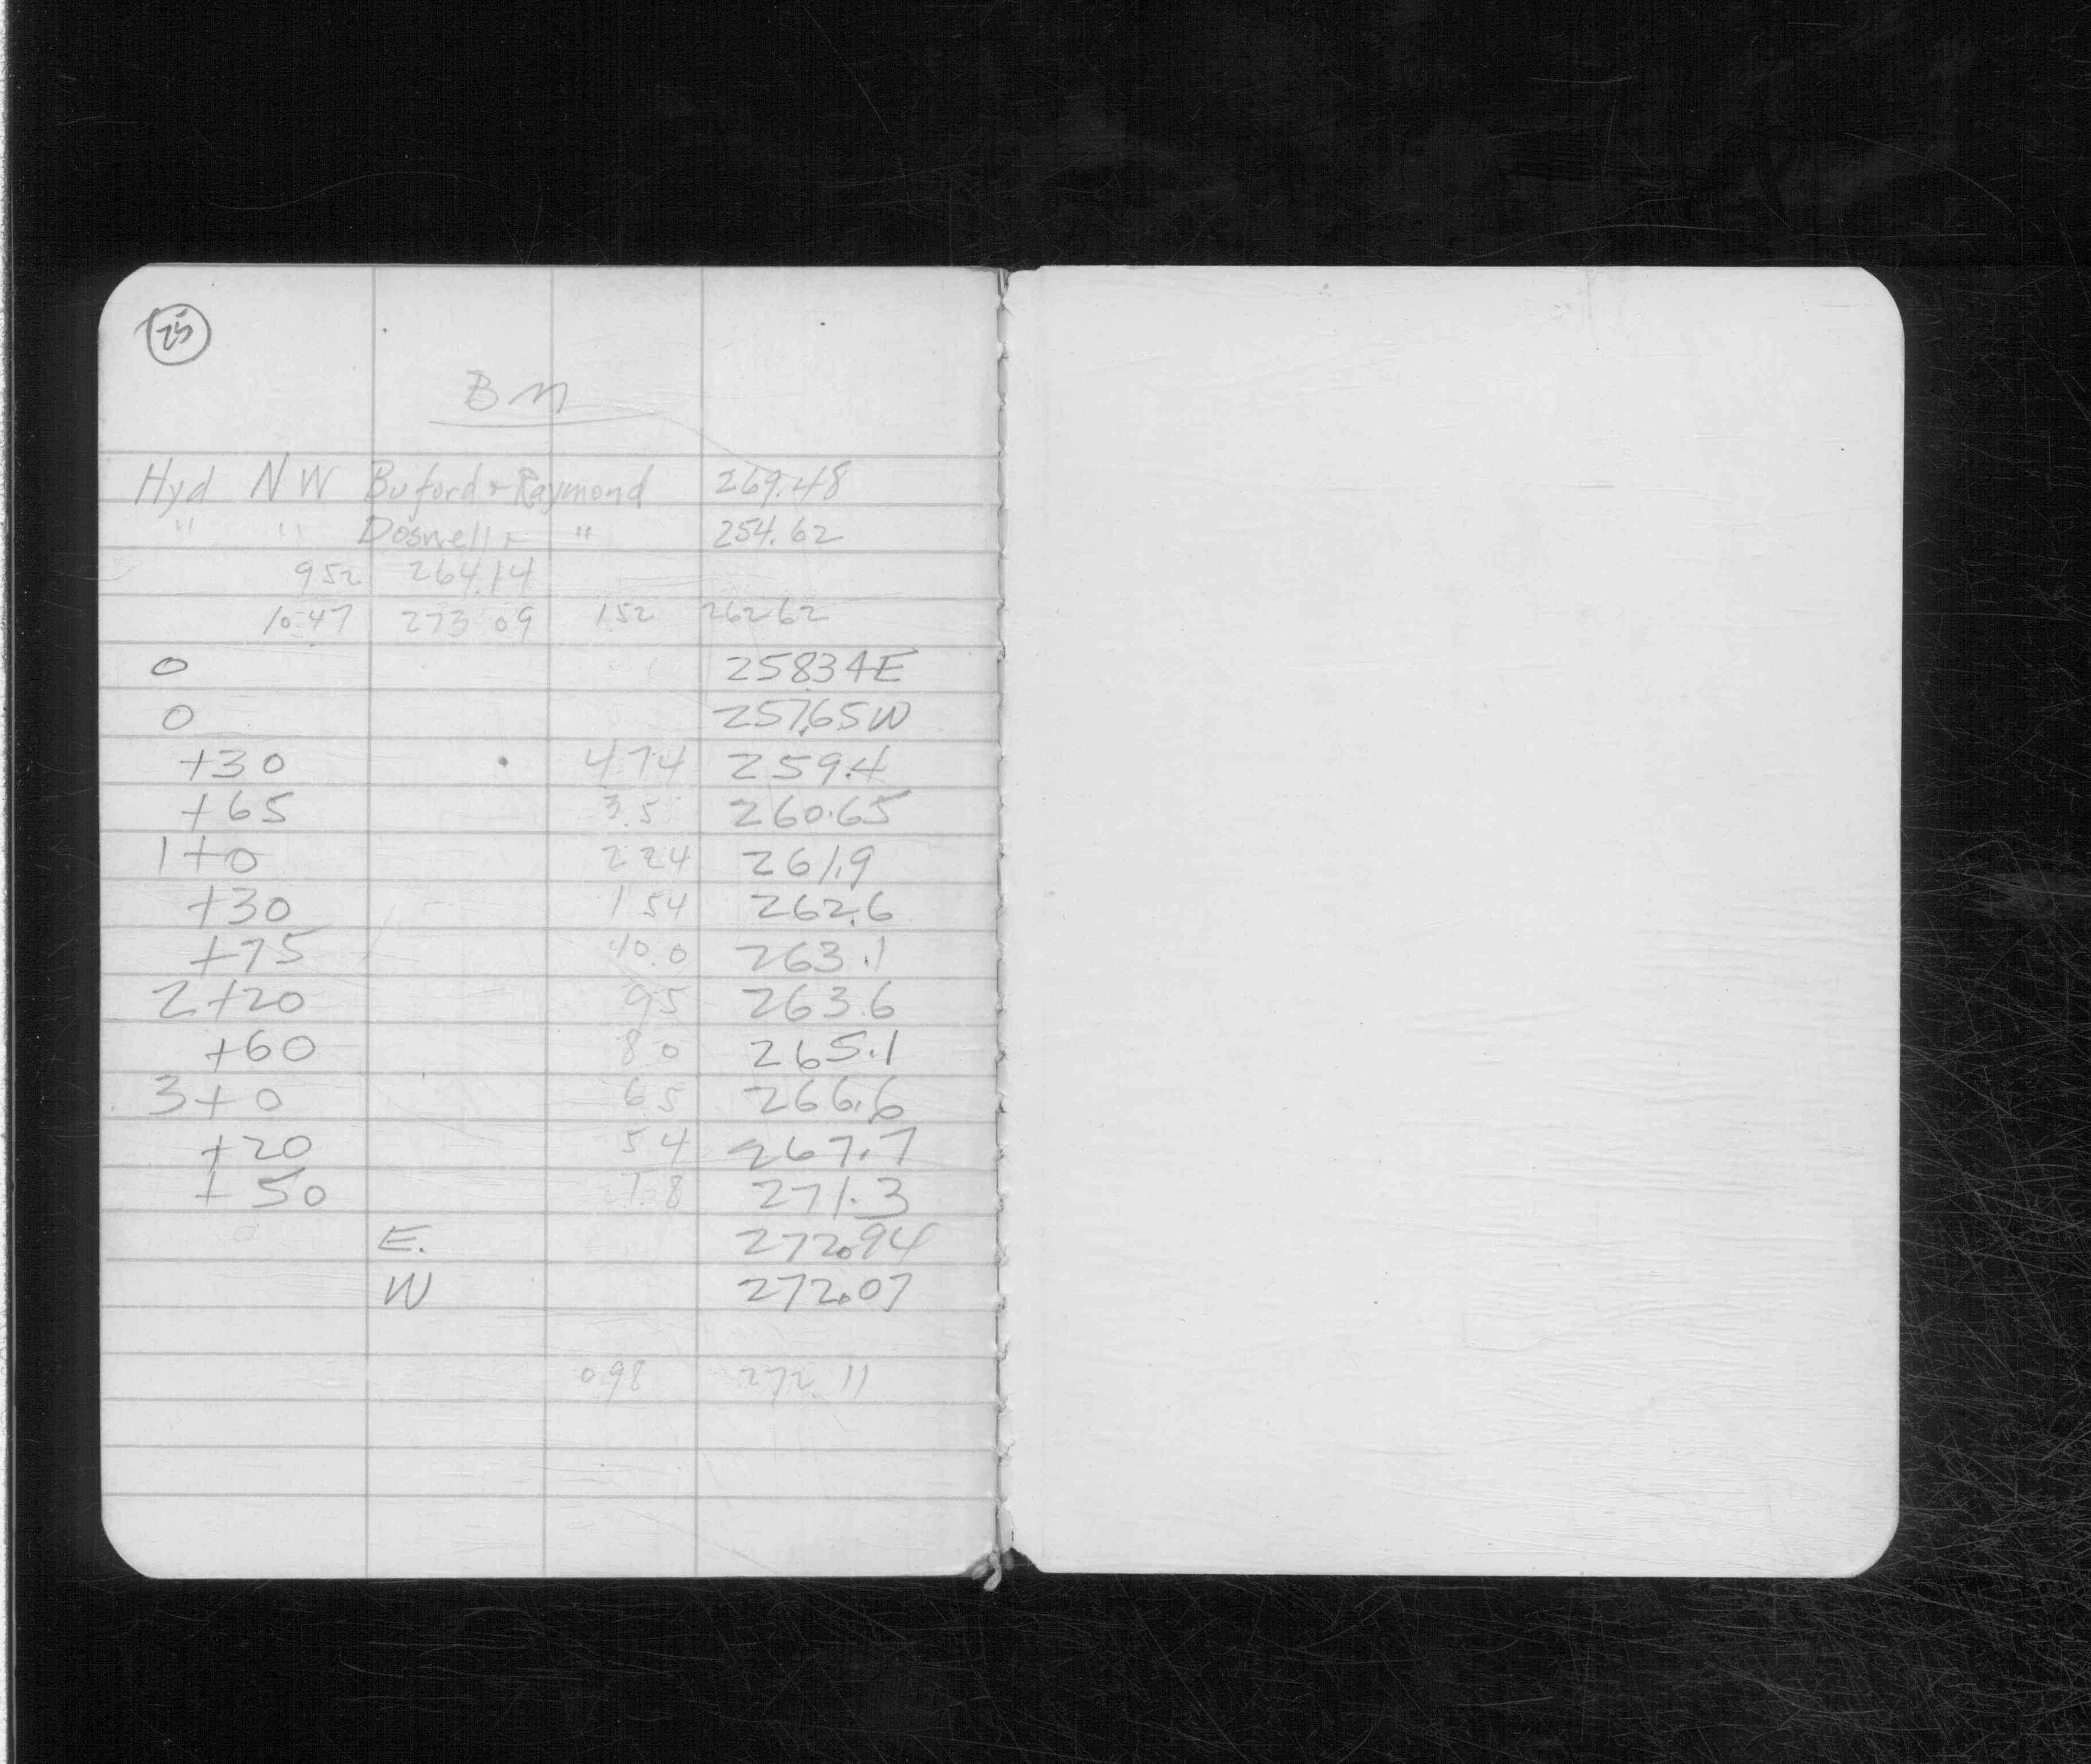 25
BM
Hyd NW Buford + Raymond 269.48
" " Doswell + " 254.62
952 264.14
10.47 273 09 152 262 62
0 25834E
0 257.65W
+30 474 259.4
+65 3.5 260.65
1+0 224 261.9
+30 154 262.6
+75 10.0 263.1
2+20 95 263.6
+60 80 265.1
3+0 65 266.6
+20 54 267.7
+50 1.8 271.3
E. 272.94
W 272.07
098 272.11